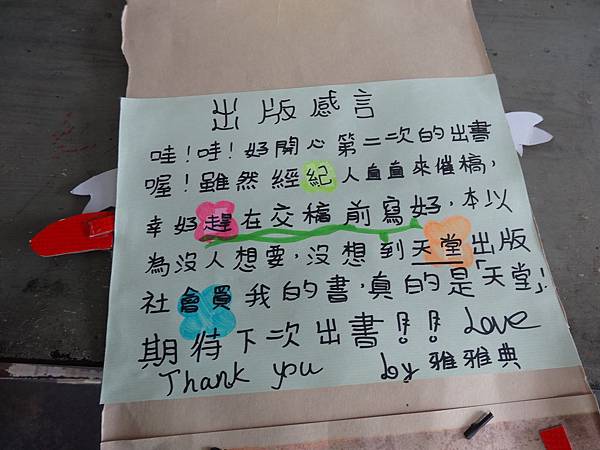 出版感言
哇!哇!好開心第二次的出書
喔!雖然經紀人直直來催稿,
幸好趕在交稿前寫好,本以
為沒人想要,沒想到天堂出版
社會買我的書,真的是「天堂」!
期待下次出書!!! Love
Thank you by 雅雅典